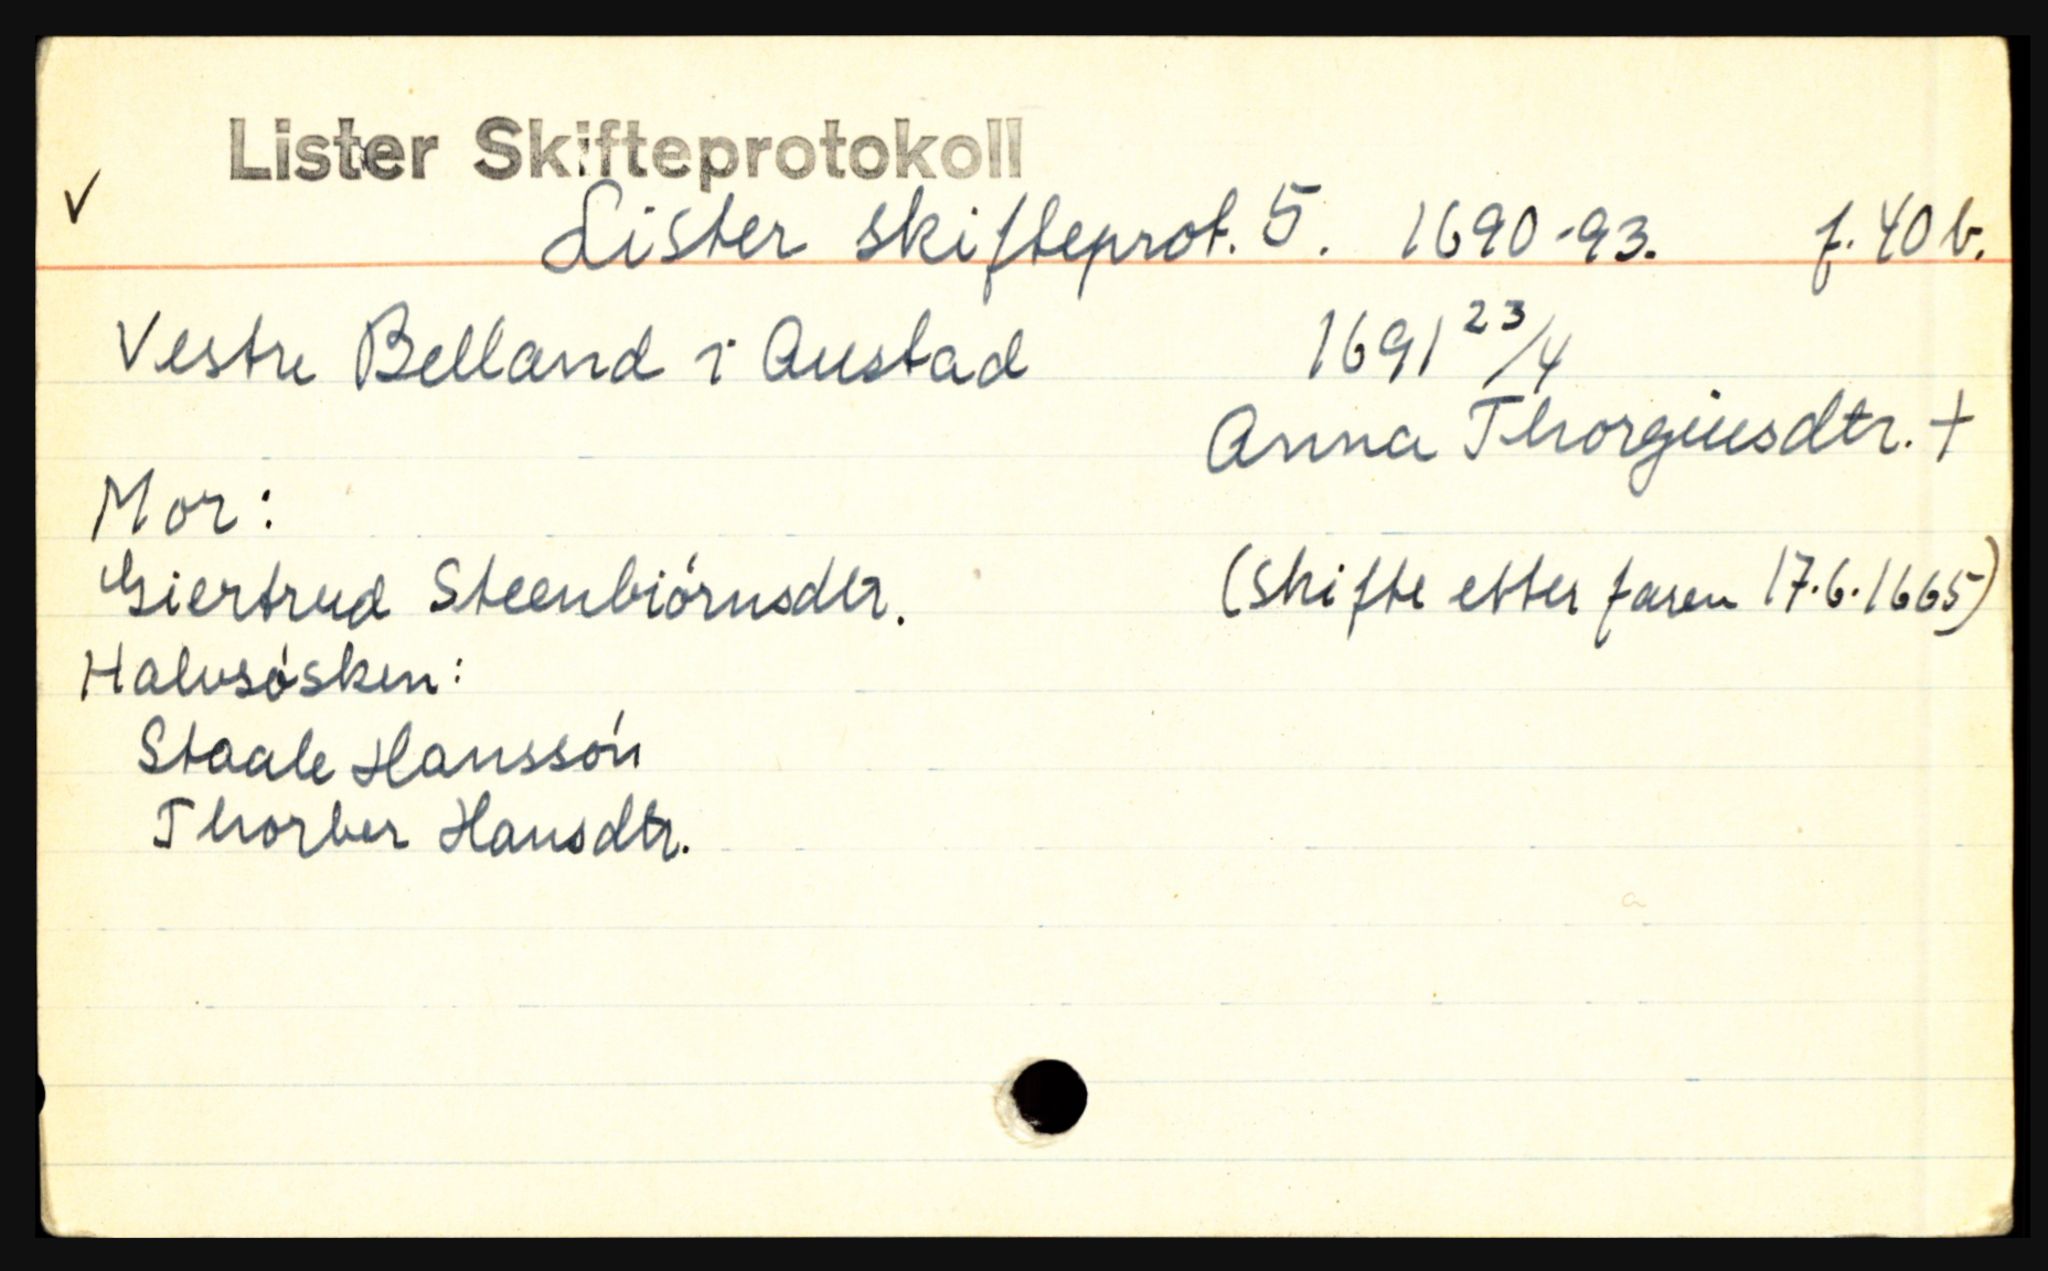 Lister Skifteprotokoll
✓ Lister skifteprot. 5. 1690-93. f. 40 b.
Vestre Belland i Austad 1691 23/4
Anna Thorgiusdtr. +
Mor:
Giertrud Steenbiórnsdtr. (Skifte etter faren 17.6.1665)
Halvsósken:
Staale Hanssón
Thorber Hansdtr.